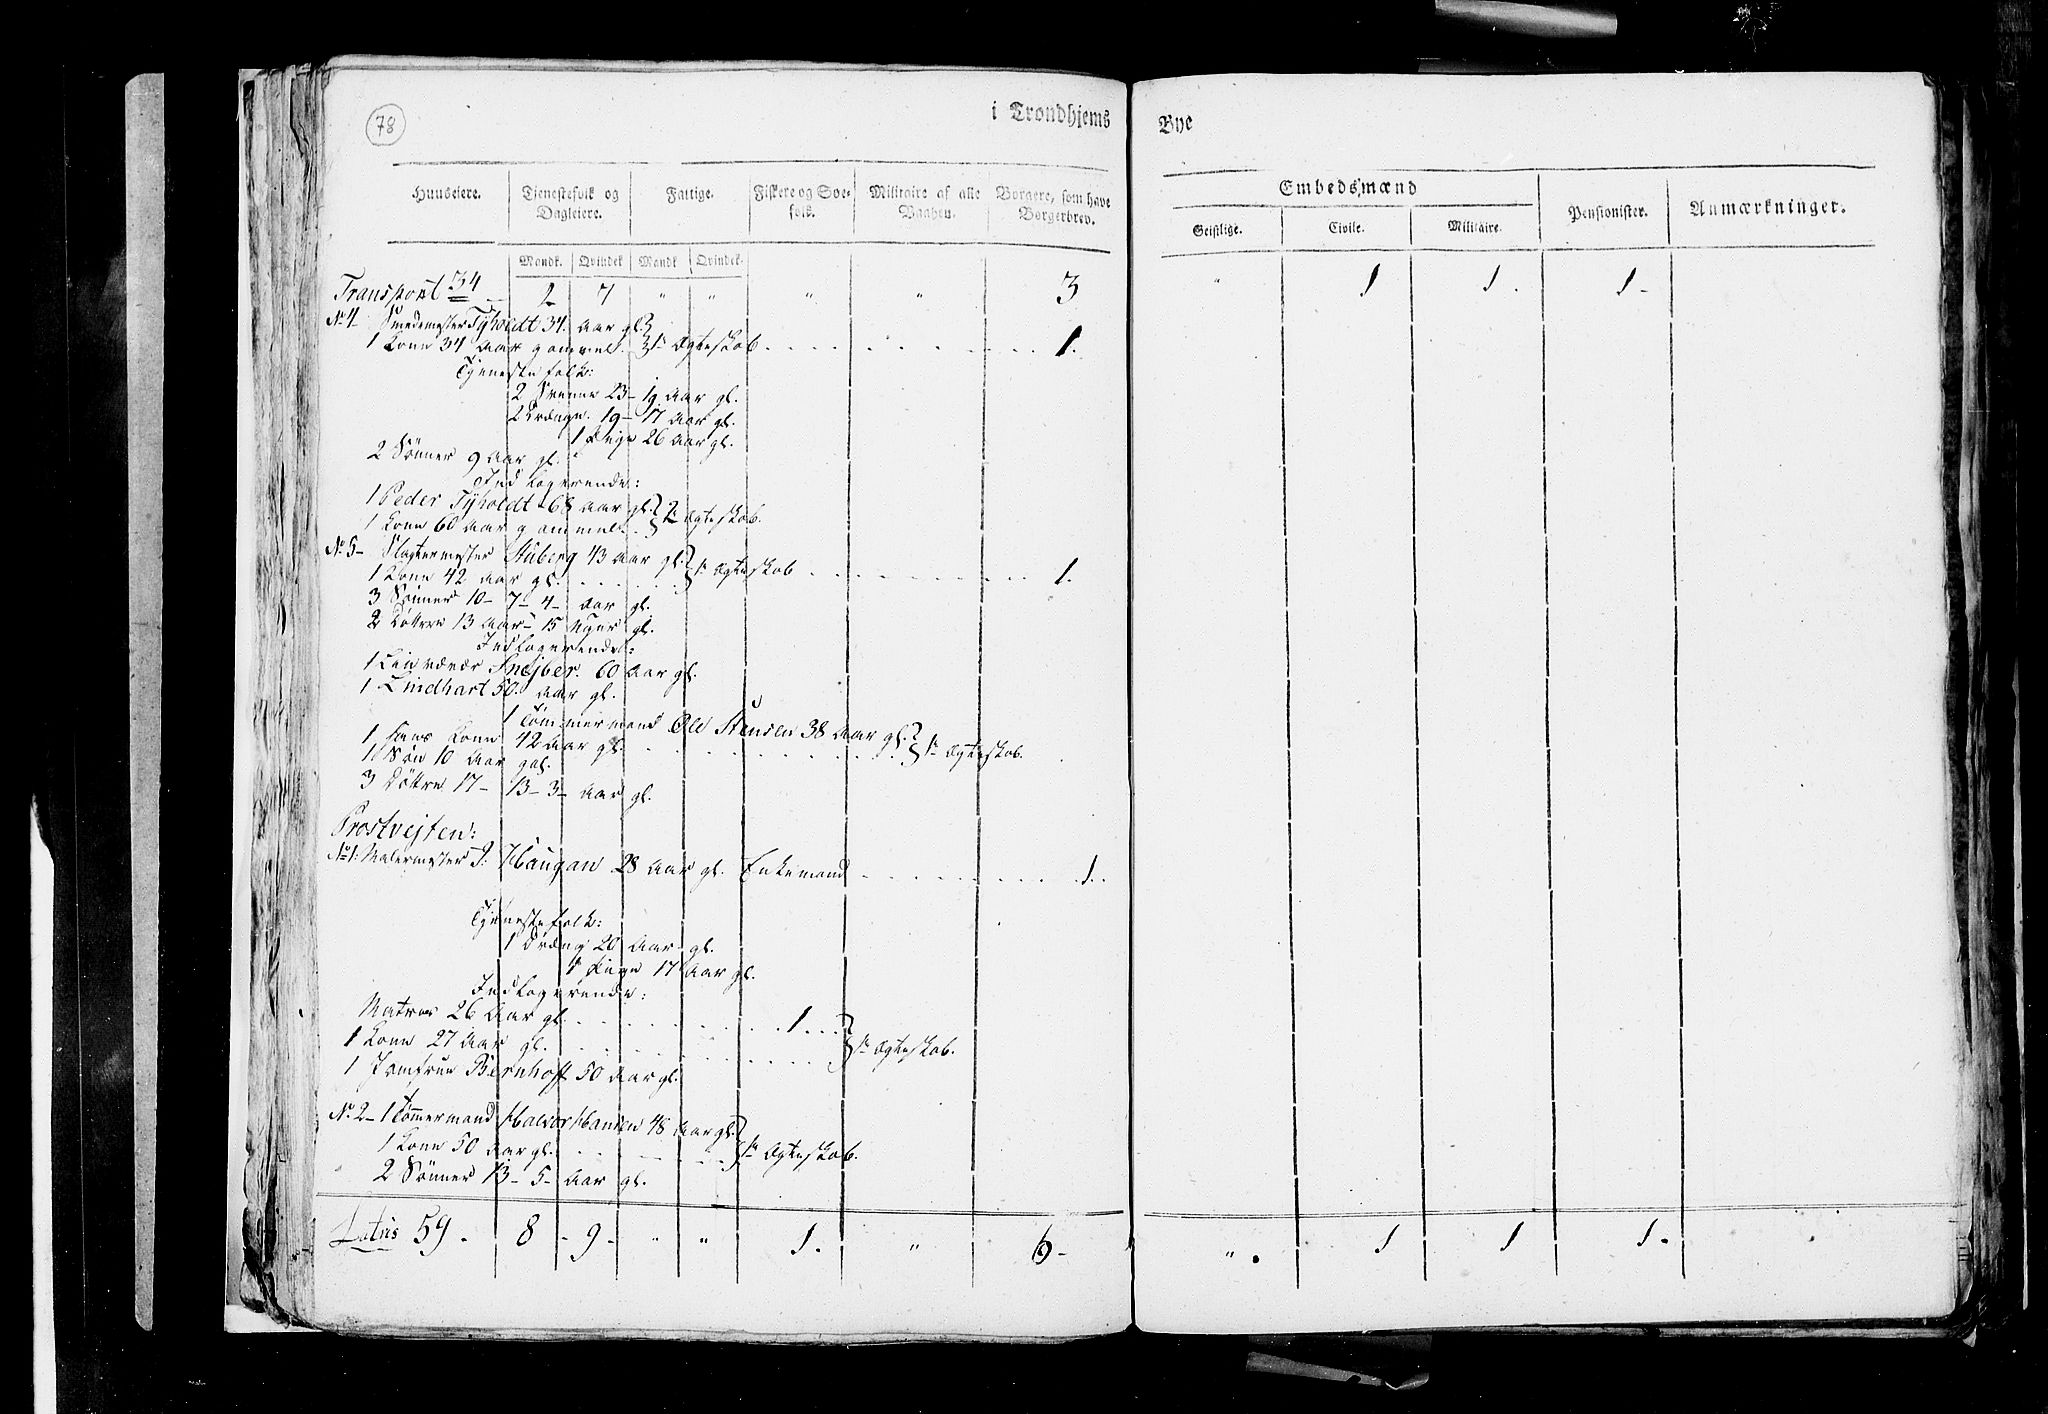 78
i Trondhjems Bye
Huuseiere. Tjenestefolk og Dagleiere. Fattige. Fiskere og Søefolk. Militaire af alle Vaaben. Borgere, som have Borgerbrev. Embedsmænd Pensionister. Anmærkninger.
Geistlige. Civile. Militaire.
Mandk. Qvindek. Mandk. Qvindek.
Transport 34 2 7 " " " " 3 " 1 1. 1-
No 4- Smedemester Tyholdt 34. Aar gl.
1 Kone 34 Aar gammel. } 1te Ægteskab . . . . 1.
Tjenestefolk:
2 Svenne 23- 19 Aar gl.
2 Drænge. 19- 17 Aar gl.
1 Pige 26 Aar gl.
2 Sønner 9 Aar gl.
Indlogerende:
1 Peder Tyholdt 68 Aar gl.
1 Kone 60 Aar gammel. } 2te Ægteskab.
No 5- Slagtermester Stuberg 43 Aar gl.
1 Kone 42 Aar gl. . . . . } 1te Ægteskab . . . . 1.
3 Sønner 10- 7- 4- Aar gl.
2 Døttre 13 Aar- 15 Uger gl.
Indlogerende:
1 Linvæver Snejber. 60 Aar gl.
1 Lindhart 50. Aar gl.
1 Tømmermand Ole Stensen 38 Aar gl.
1 Hans Kone 42 Aar gl. . . . . } 1te Ægteskab.
1 Søn 10 Aar gal.
3 Døttre 17- 13- 3- Aar gl.
Prostvejten:
No 1: Malermester J: Haugan 28 Aar gl. Enkemand . . . . 1.
Tjenestefolk:
1 Dræng 20 Aar gl.
1 Pige 17 Aar gl.
Indlogerende:
Matros 26 Aar gl. . . . . 1 . . .
1 Kone 27 Aar gl. . . . . } 1te Ægteskab.
1 Jomfrue Bernhoff 50 Aar gl.
No. 2- 1 Tømmermand Halvor Hansen 48 Aar gl.
1 Kone 50 Aar gl. . . . . } 1te Ægteskab.
2 Sønner 13- 5- Aar gl.
Latus 59. 8 - 9 - " " 1. " 6 - " . 1 1 1.